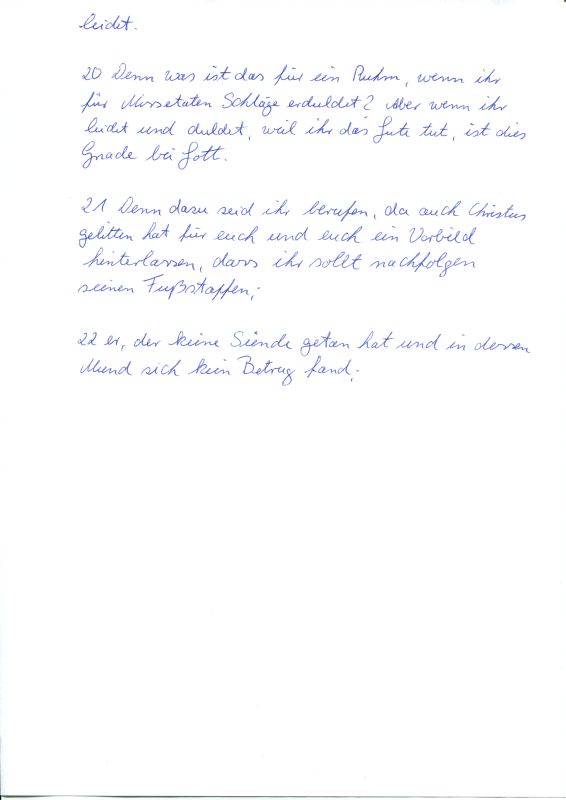 leidet.
20 Denn was ist das für ein Ruhm, wenn ihr
für Missetaten Schläge erduldet? Aber wenn ihr
leidet und duldet, weil ihr das Gute tut, ist dies
Gnade bei Gott.
21 Denn dazu seid ihr berufen, da auch Christus
gelitten hat für euch und euch ein Vorbild
hinterlassen, dass ihr sollt nachfolgen
seinen Fußstapfen;
22 er, der keine Sünde getan hat und in dessen
Mund sich kein Betrug fand;